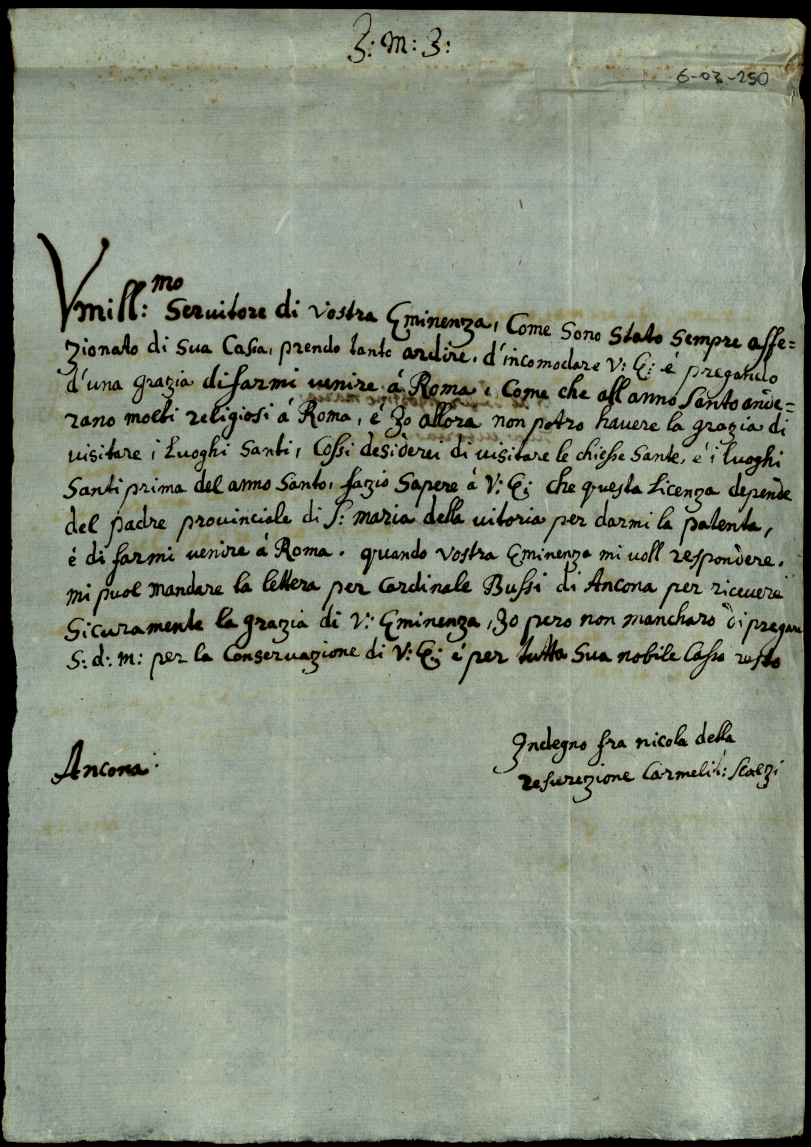 J: M: J:
6-03-250
Vmill:mo Seruitore di Vostra Eminenza, Come Sono Stato Sempre affe=
zionato di Sua Casa, prendo tanto ardire, d'incomodare V: E: é pregando
d'una grazia di farmi uenire á Roma, Come che all anno Santo ande=
rano molti religiosi á Roma, é Jo allora non potro hauere la grazia di
uisitare i Luoghi Santi, Cossi desiderei di uisitare le chiesse Sante, é i luoghi
Santi prima del anno Santo, fazio Sapere á V: E: che questa Licenza depende
del padre prouinciale di S: maria della uitoria per darmi la patenta,
é di farmi uenire á Roma. quando Vostra Eminenza mi uoll respondere.
mi puol mandare la lettera per Cardinale Bussi di Ancona per riceuere
Sicuramente la grazia di V: Eminenza, Jo pero non mancharo di pregare
S: d: m: per la Conseruazione di V: E: é per tutta Sua nobile Cassa resto
Jndegno fra nicola della
resurezione Carmelit: Scalzi
Ancona